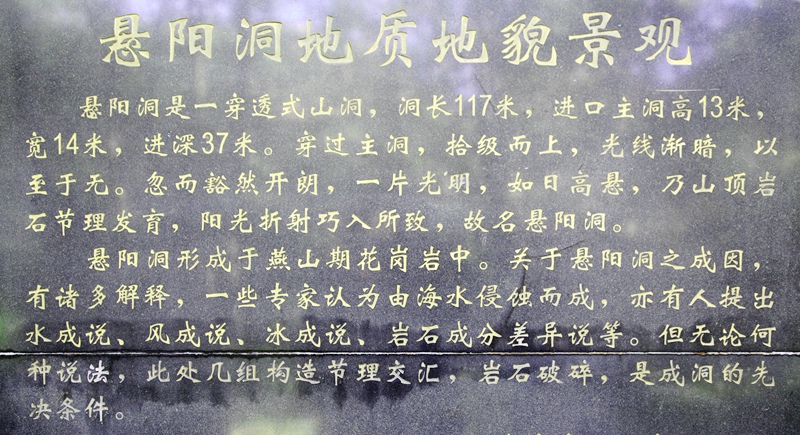 悬阳洞地质地貌景观
悬阳洞是一穿透式山洞，洞长117米，进口主洞高13米，
宽14米，进深37米。穿过主洞，拾级而上，光线渐暗，以
至于无。忽而豁然开朗，一片光明，如日高悬，乃山顶岩
石节理发育，阳光折射巧入所致，故名悬阳洞。
悬阳洞形成于燕山期花岗岩中。关于悬阳洞之成因，
有诸多解释，一些专家认为由海水侵蚀而成，亦有人提出
水成说、风成说、冰成说、岩石成分差异说等。但无论何
种说法，此处几组构造节理交汇，岩石破碎，是成洞的先
决条件。